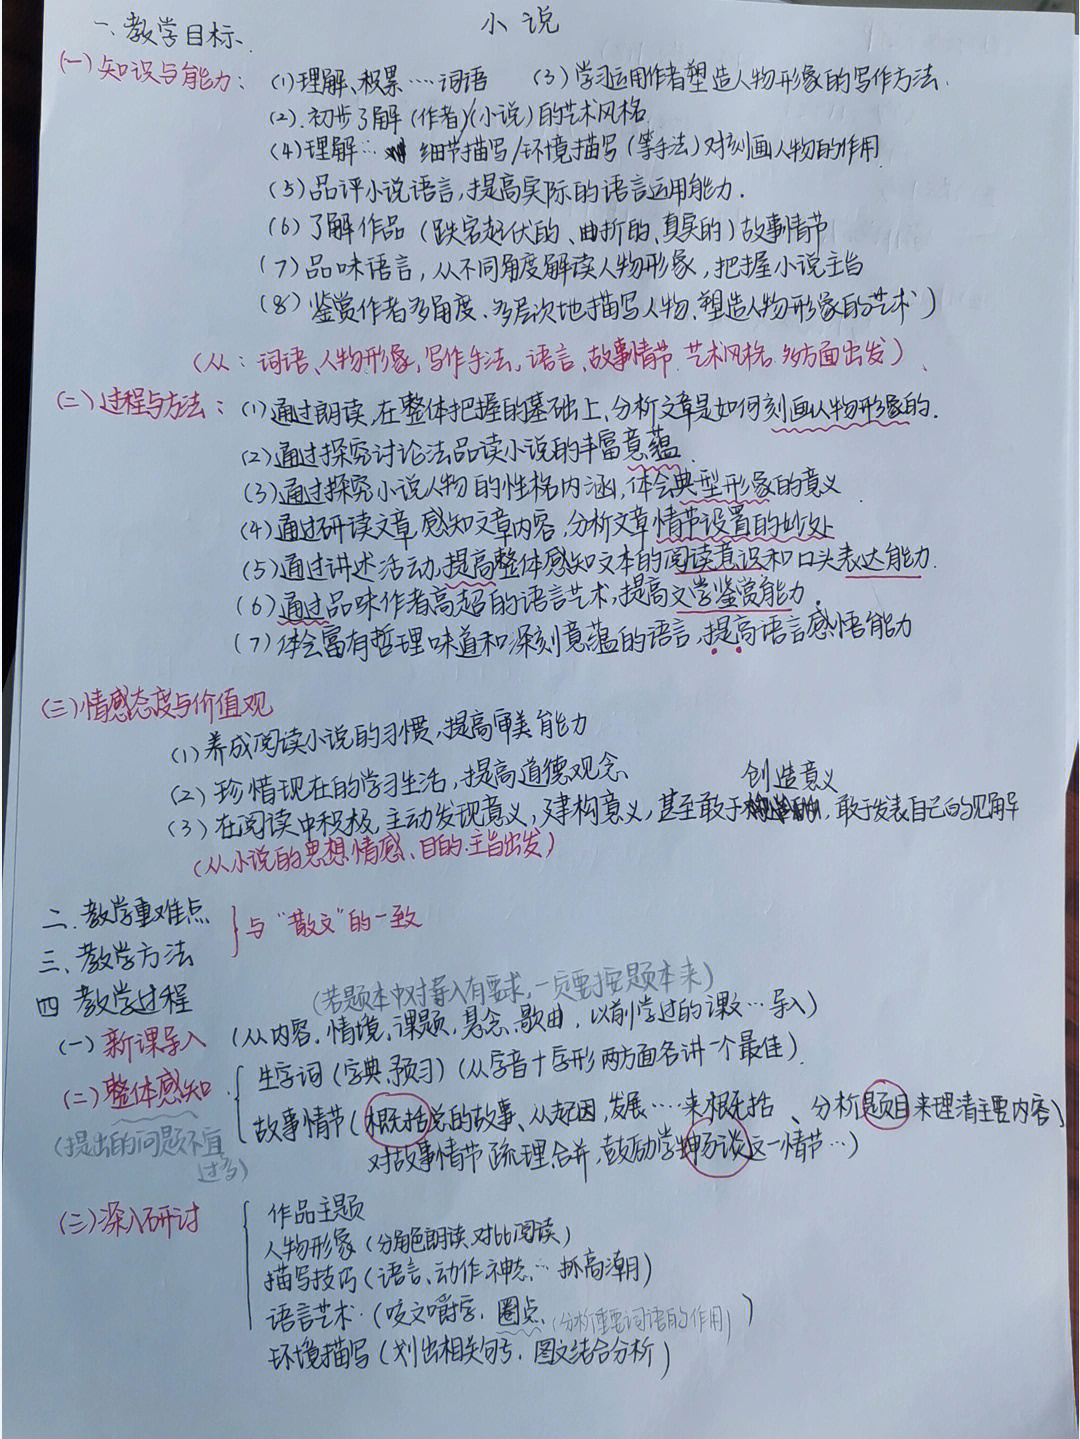 小说
一、教学目标
(一)知识与能力：(1)理解、积累……词语 (3)学习运用作者塑造人物形象的写作方法.
(2).初步了解(作者)/(小说)的艺术风格
(4)理解…细节描写/环境描写(等手法)对刻画人物的作用
(5)品评小说语言,提高实际的语言运用能力.
(6)了解作品(跌宕起伏的、曲折的、真实的)故事情节
(7)品味语言,从不同角度解读人物形象,把握小说主旨
(8)鉴赏作者多角度、多层次地描写人物、塑造人物形象的艺术)
(从：词语、人物形象,写作手法,语言、故事情节.艺术风格.多方面出发)
(二)过程与方法：(1)通过朗读,在整体把握的基础上,分析文章是如何刻画人物形象的.
(2)通过探究讨论法品读小说的丰富意蕴
(3)通过探究小说人物的性格内涵,体会典型形象的意义
(4)通过研读文章,感知文章内容,分析文章情节设置的妙处
(5)通过讲述活动,提高整体感知文本的阅读意识和口头表达能力.
(6)通过品味作者高超的语言艺术,提高文学鉴赏能力.
(7)体会富有哲理味道和深刻意蕴的语言,提高语言感悟能力
(三)情感态度与价值观
(1)养成阅读小说的习惯,提高审美能力
(2)珍惜现在的学习生活,提高道德观念
创造意义
(3)在阅读中积极,主动发现意义,建构意义,甚至敢于,敢于发表自己的见解
(从小说的思想情感、目的.主旨出发)
二.教学重难点
}与“散文”的一致
三、教学方法
四 教学过程
(若题本中对导入有要求,一定要按题本来)
(一)新课导入 (从内容,情境,课题,悬念,歌曲,以前学过的课文…导入)
(二)整体感知 生字词(字典、预习)(从字音+字形两方面各讲一个最佳)
故事情节(概括党的故事、从起因,发展……来概括、分析题目来理清主要内容)
(提出的问题不宜过多) 对故事情节疏理,合并,鼓励学生畅谈这一情节…)
(三)深入研讨 作品主题
人物形象(分角色朗读,对比阅读)
描写技巧(语言、动作.神态…抓高潮)
语言艺术.(咬文嚼字.圈点.(分析重要词语的作用))
环境描写(划出相关句子.图文结合分析)